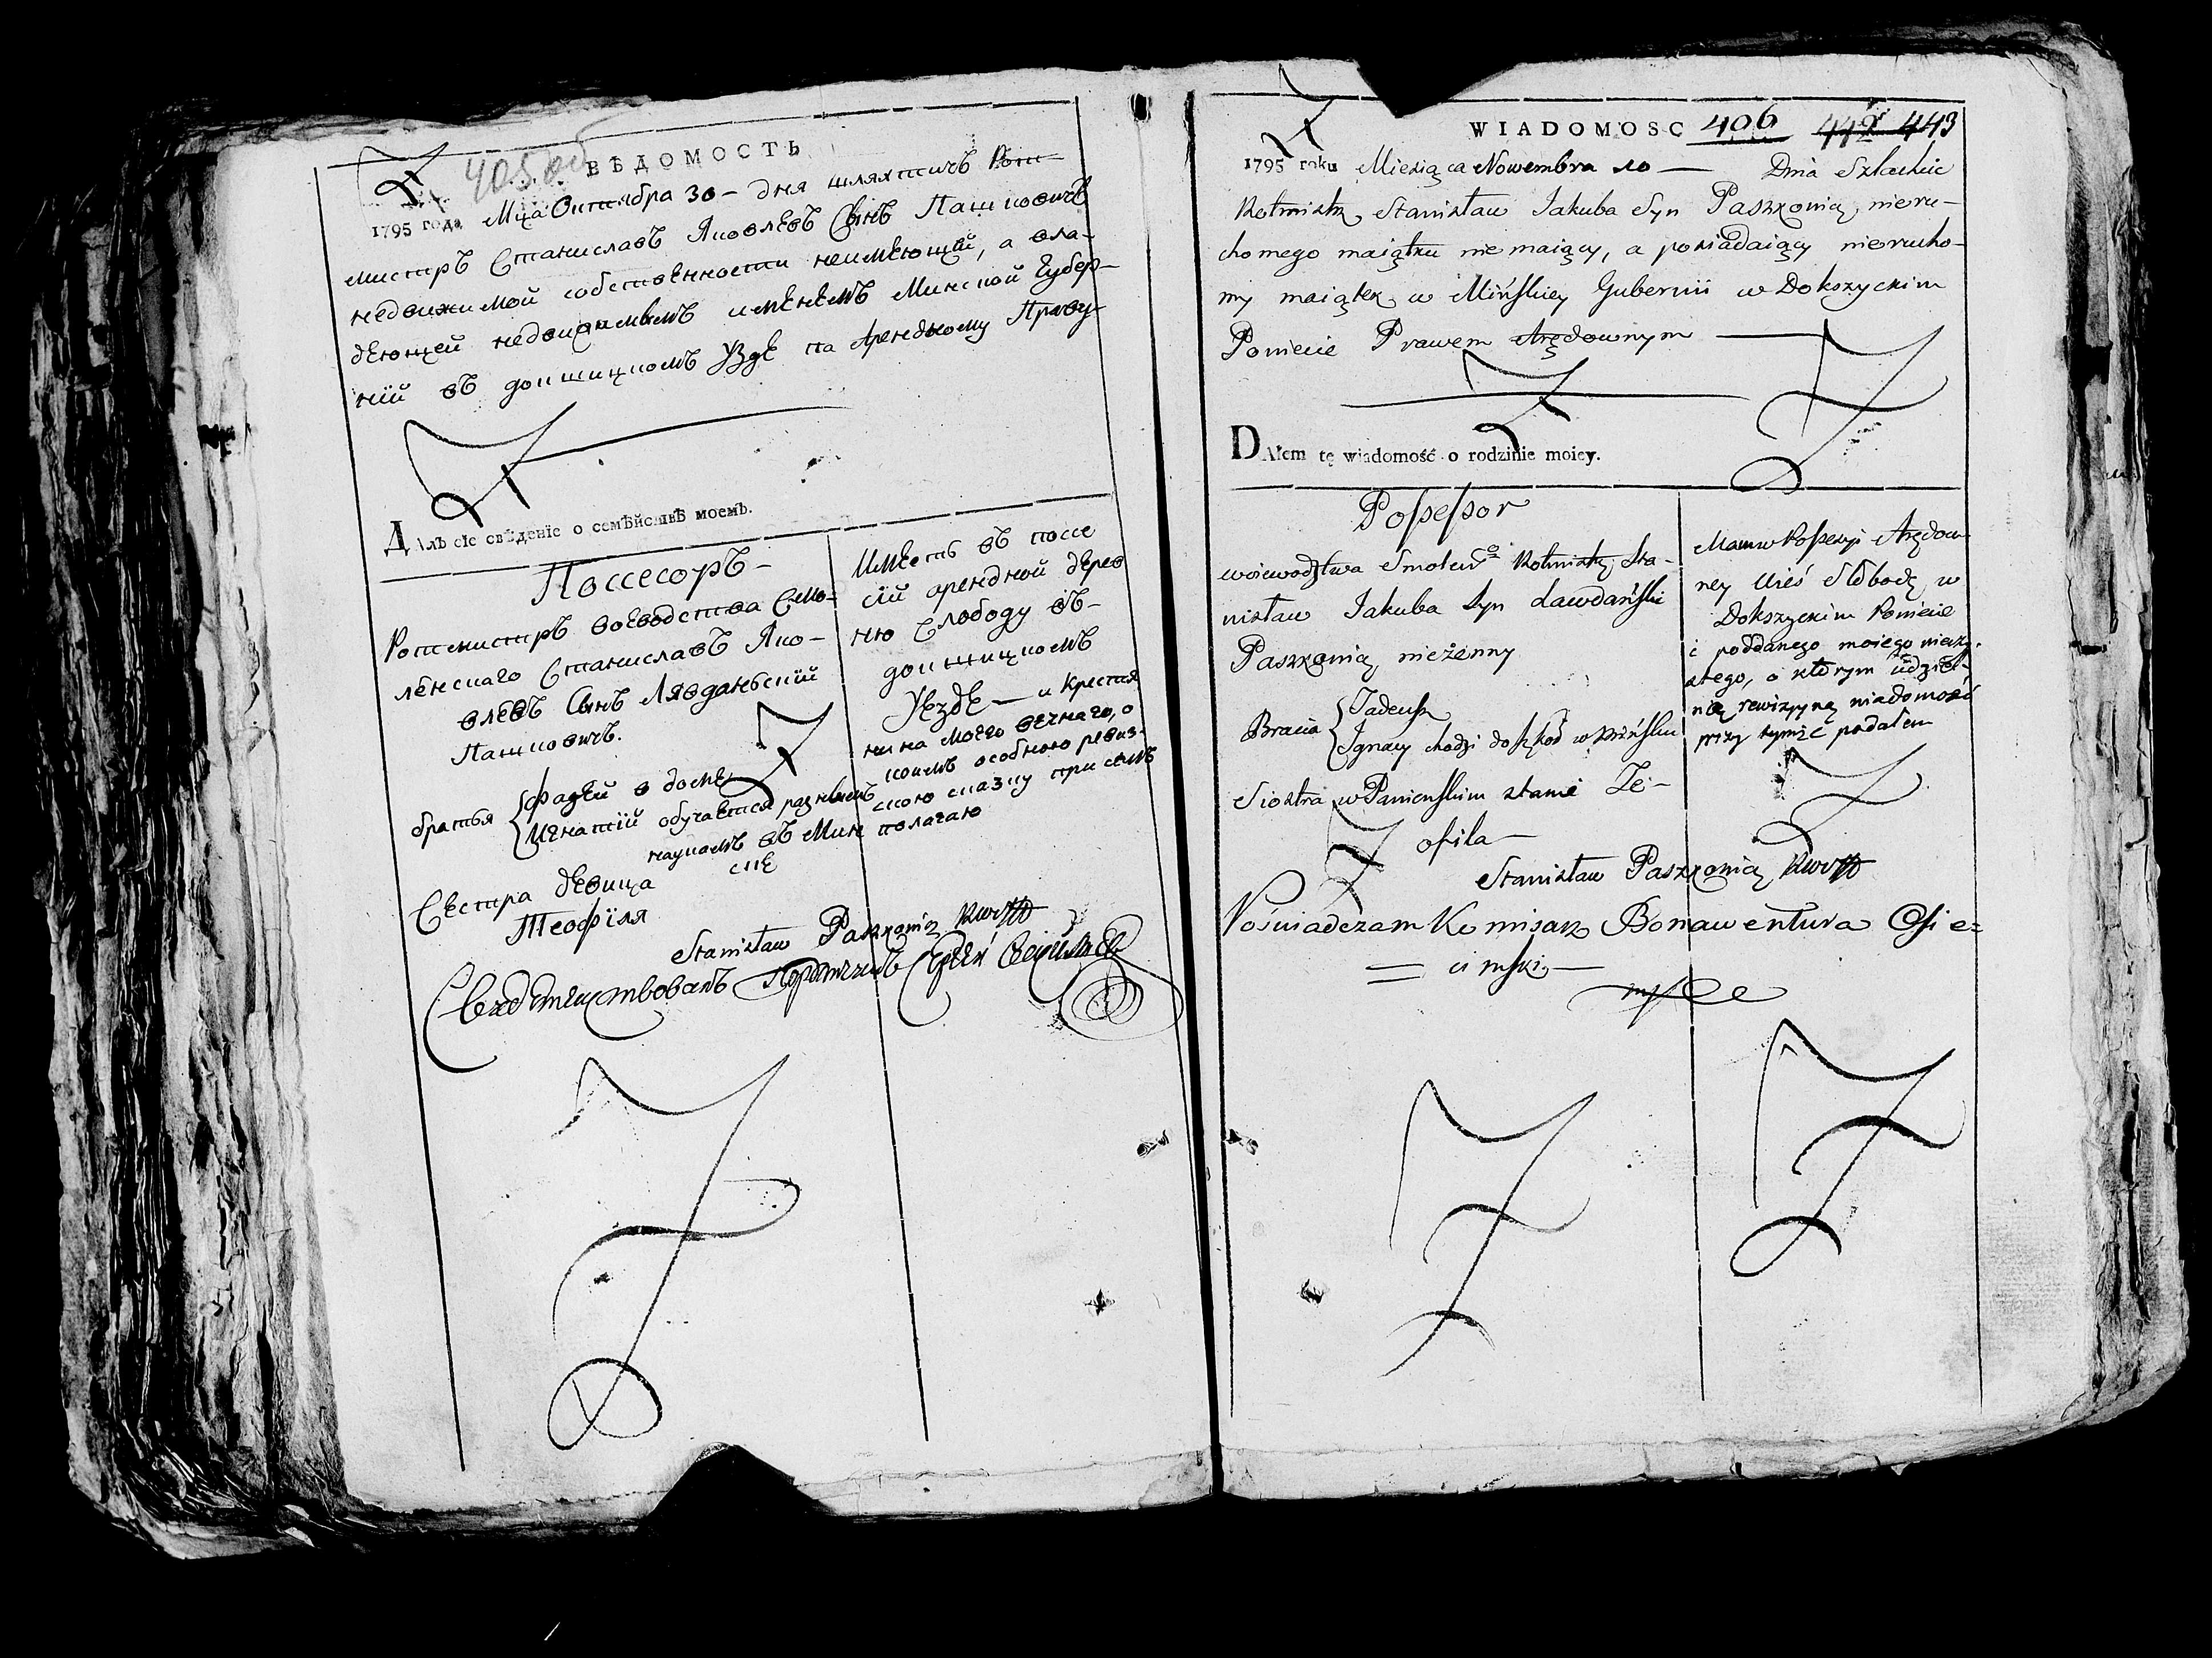 405 об
ВѢДОМОСТЬ
1795 года Мца Октября 30 — дня шляхтичъ Рот-
мистръ Станиславъ Яковлевъ Сынъ Пашковичъ
недвижимой собственности неимеющий, а вла-
деющей недвижимымъ имениемъ Минской Губер-
нiй въ докшицкомъ Узде па Арендному Праву
Далъ сiе свѣденiе о семѣйствѣ моемъ.
Поссесоръ —
Ротмистръ воеводства Смо-
ленскаго Станиславъ Яко-
влевъ Сынъ Лявданьскiй
Пашковичъ.
братья { Фадей в доме
Игнатiй обучается разнымъ
наукамъ въ Мин
ске
Сестра девица
Теофiля
Имеетъ въ поссе
сiй арендной дерев
ню Слободу въ-
докшицкомъ
Уезде — и крестья
нина моего вечнаго, о
коемъ особною ревиз-
скою сказку при семъ
полагаю
Stanisław Paszkowicz Rwstt
Свидетелствовалъ Порутчикъ Сергей
WIADOMOSC 406 442 443
1795 roku Miesiąca Nowembra 10 — Dnia Szlachcic
Rotmistrz Stanisław Jakuba Syn Paszkowicz, nieru-
chomego maiątku nie maiący, a posiadaiący nierucho-
my maiątek w Mińskiey Gubernii w Dokszyckim
Powiecie Prawem Arędownym —
DAłem tę wiadomość o rodzinie moiey.
Possessor
woiewodztwa Smoleńgo Rotmistrz Sta-
nisław Jakuba Syn Lawdański
Paszkowicz nieżenny
Bracia { Tadeusz
Ignacy chodzi do szkoł w Mińsku
Siostra w Panieńskim stanie Te-
ofila —
Mam w Possesyi Arędow-
ney Wieś Słobodę w
Dokszyckim Powiecie
i poddanego moiego wieczy-
stego, o ktorym udziel-
ną rewizyyną wiadomość
przy tymże podałem
Stanisław Paszkowicz Rwstt
Poświadczam Komisarz Bonawentura Osie=
= cimski —
mp